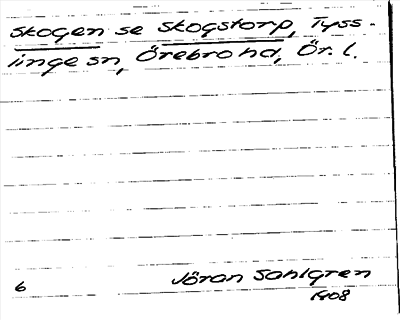 Skogen se Skogstorp, Tyss-
linge sn, Örebro hd, Ör. l.
6
Jöran Sahlgren
1908